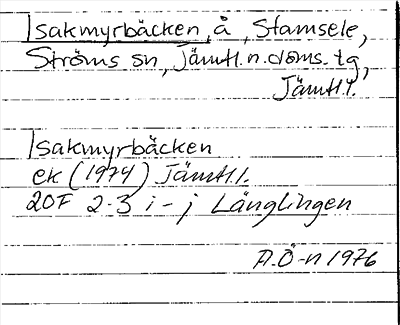 Isakmyrbäcken, å, Stamsele,
Ströms sn, Jämtl. n. doms. tg,
Jämtl. l.
Isakmyrbäcken
ek (1974) Jämtl. l.
20F 2-3 i-j Långlingen
A.Ö-n 1976